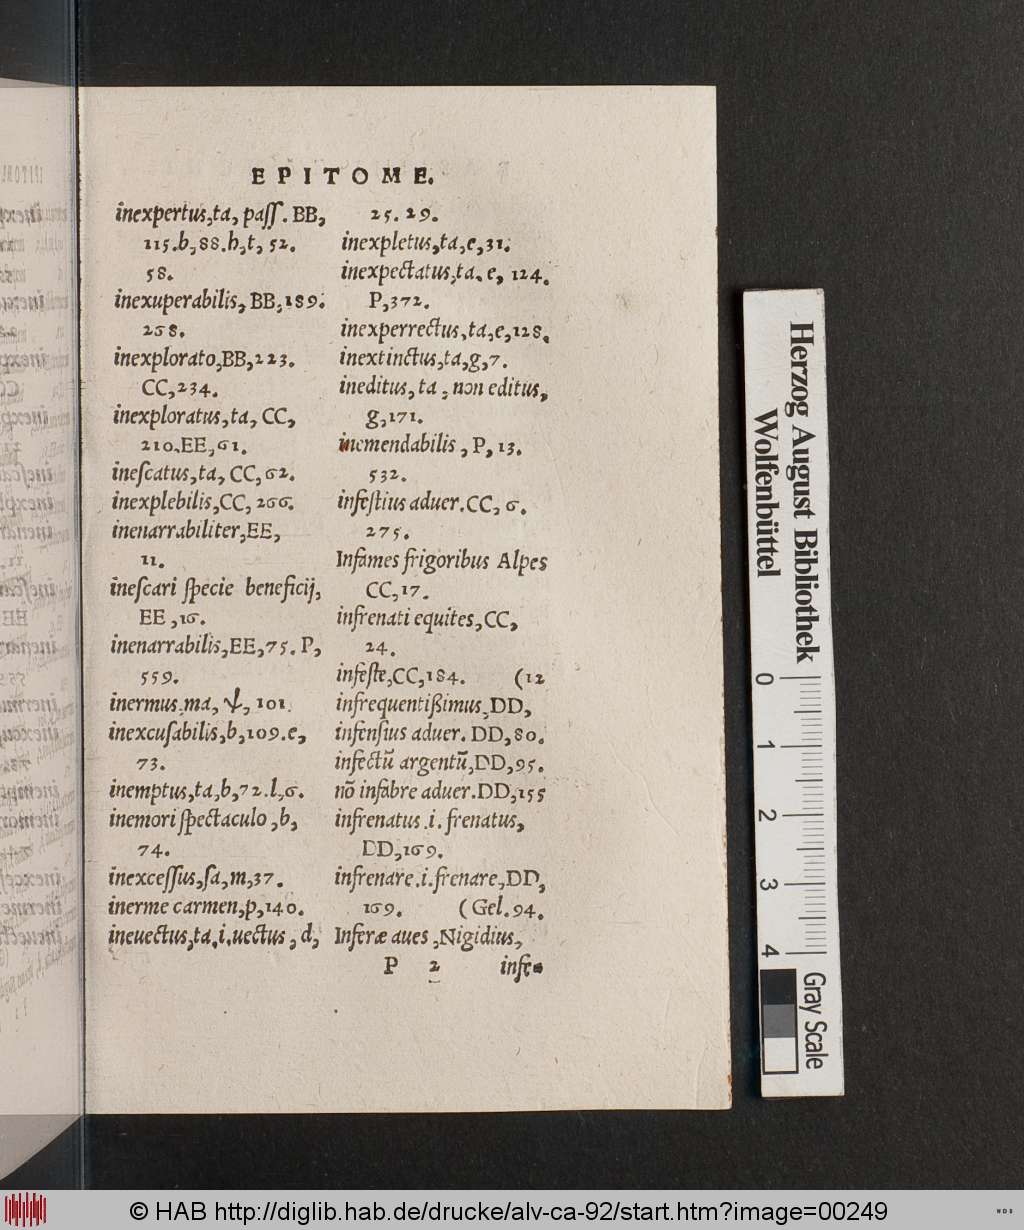 EPITOME.
inexpertus,ta, paſſ. BB,
115.b,88.h,t, 52.
58.
inexuperabilis, BB,189.
268.
inexplorato,BB,223.
CC,234.
inexploratus,ta, CC,
210.EE,61.
ineſcatus,ta, CC,62.
inexplebilis,CC, 266.
inenarrabiliter,EE,
11.
ineſcari ſpecie beneficij,
EE,16.
inenarrabilis,EE,75. P,
559.
inermus,ma, ѱ, 101.
inexcuſabilis,b,109.e,
73.
inemptus,ta,b,72.l,6.
inemori ſpectaculo,b,
74.
inexceſſus,ſa,m,37.
inerme carmen,p,140.
ineuectus,ta.i.uectus, d,
25.29.
inexpletus,ta,e,31.
inexpectatus,ta.e, 124.
P,372.
inexperrectus,ta,e,128.
inextinctus,ta,g,7.
ineditus,ta, non editus,
g,171.
inemendabilis, P, 13.
532.
infeſtius aduer.CC, 6.
275.
Infames frigoribus Alpes
CC,17.
infrenati equites,CC,
24.
infeſte,CC,184. (12
infrequentißimus,DD,
infenſius aduer. DD,80.
infectũ argentũ,DD,95.
nõ infabre aduer.DD,155
infrenatus.i. frenatus,
DD,169.
infrenare.i.frenare,DD,
169. (Gel.94.
Inferæ aues,Nigidius,
P 2 infe-
Herzog August Bibliothek
Wolfenbüttel
0 1 2 3 4
Gray Scale
© HAB http://diglib.hab.de/drucke/alv-ca-92/start.htm?image=00249